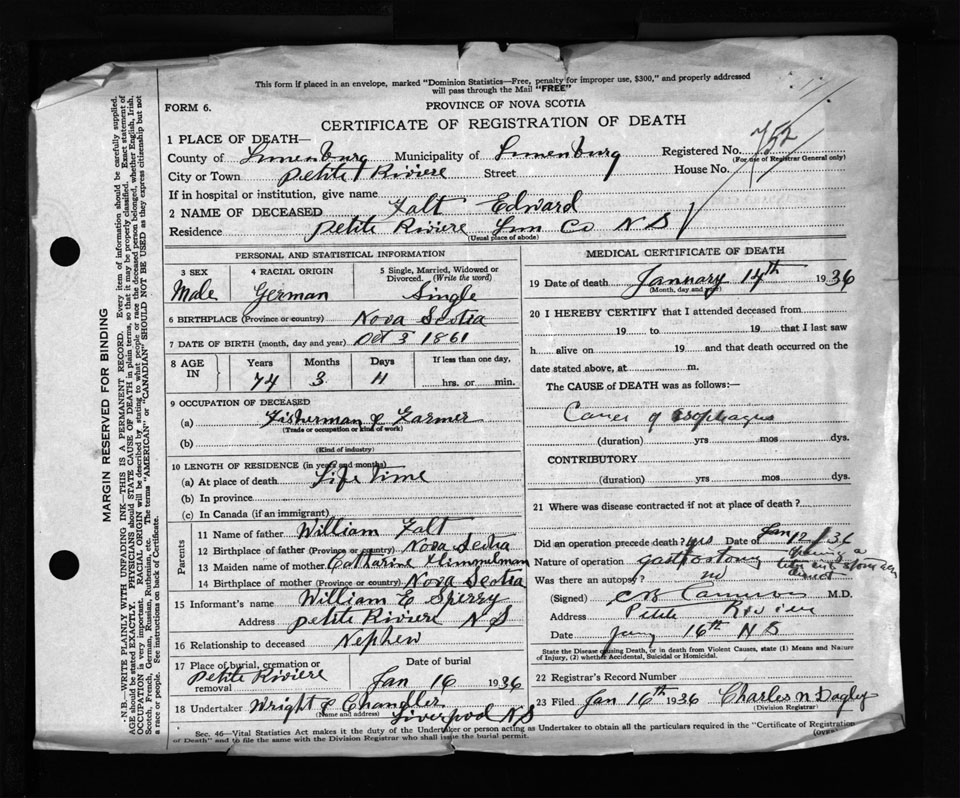 This form if placed in an envelope, marked "Dominion Statistics—Free, penalty for improper use, $300," and properly addressed
will pass through the Mail "FREE"
FORM 6.
PROVINCE OF NOVA SCOTIA
CERTIFICATE OF REGISTRATION OF DEATH
1 PLACE OF DEATH—
Registered No. 752
(For use of Registrar General only)
County of Lunenburg Municipality of Lunenburg
City or Town Petite Riviere Street House No.
If in hospital or institution, give name
2 NAME OF DECEASED Falt Edward
Residence Petite Riviere Lun Co N S
(Usual place of abode)
PERSONAL AND STATISTICAL INFORMATION
3 SEX Male
4 RACIAL ORIGIN German
5 Single, Married, Widowed or
Divorced. (Write the word)
Single
6 BIRTHPLACE (Province or country) Nova Scotia
7 DATE OF BIRTH (month, day and year) Oct 3 1861
8 AGE IN
Years Months Days If less than one day,
74 3 11 hrs. or min.
9 OCCUPATION OF DECEASED
(a) Fisherman & Farmer
(Trade or occupation or kind of work)
(b)
(Kind of industry)
10 LENGTH OF RESIDENCE (in years and months)
(a) At place of death Life time
(b) In province
(c) In Canada (if an immigrant)
Parents
11 Name of father William Falt
12 Birthplace of father (Province or country) Nova Scotia
13 Maiden name of mother Catharine Himmelman
14 Birthplace of mother (Province or country) Nova Scotia
15 Informant's name William E Sperry
Address Petite Riviere N S
16 Relationship to deceased Nephew
17 Place of burial, cremation or
removal Petite Riviere
Date of burial
Jan 16 1936
18 Undertaker Wright & Chandler
(Name and address) Liverpool N S
MEDICAL CERTIFICATE OF DEATH
19 Date of death January 14th 1936
(Month, day and year)
20 I HEREBY CERTIFY that I attended deceased from
19 to 19 that I last saw
h alive on 19 and that death occurred on the
date stated above, at m.
The CAUSE of DEATH was as follows:—
Cancer of Esophagus
(duration) yrs mos dys.
CONTRIBUTORY
(duration) yrs mos dys.
21 Where was disease contracted if not at place of death?
Did an operation precede death? yes Date of Jan 12/36
Nature of operation gastrostomy
Was there an autopsy? no
(Signed) C B Cameron M.D.
Address Petite Riviere
Date Jany 16th N S
State the Disease causing Death, or in death from Violent Causes, state (1) Means and Nature
of Injury, (2) whether Accidental, Suicidal or Homicidal.
22 Registrar's Record Number
23 Filed Jan 16th 1936 Charles N Dagley
(Division Registrar)
Sec. 46—Vital Statistics Act makes it the duty of the Undertaker or person acting as Undertaker to obtain all the particulars required in the "Certificate of Registration
of Death" and to file the same with the Division Registrar who shall issue the burial permit. (OVER)
MARGIN RESERVED FOR BINDING
N.B.—WRITE PLAINLY WITH UNFADING INK—THIS IS A PERMANENT RECORD. Every item of information should be carefully supplied.
AGE should be stated EXACTLY. PHYSICIANS should STATE CAUSE OF DEATH in plain terms, so that it may be properly classified. Exact statement of
OCCUPATION is very important. RACIAL ORIGIN will be described by stating to what people or race the deceased person belonged, whether English, Irish,
Scotch, French, German, Russian, Ruthenian, etc. The terms "AMERICAN" or "CANADIAN" SHOULD NOT BE USED as they express citizenship but not
a race or people. See instructions on back of Certificate.